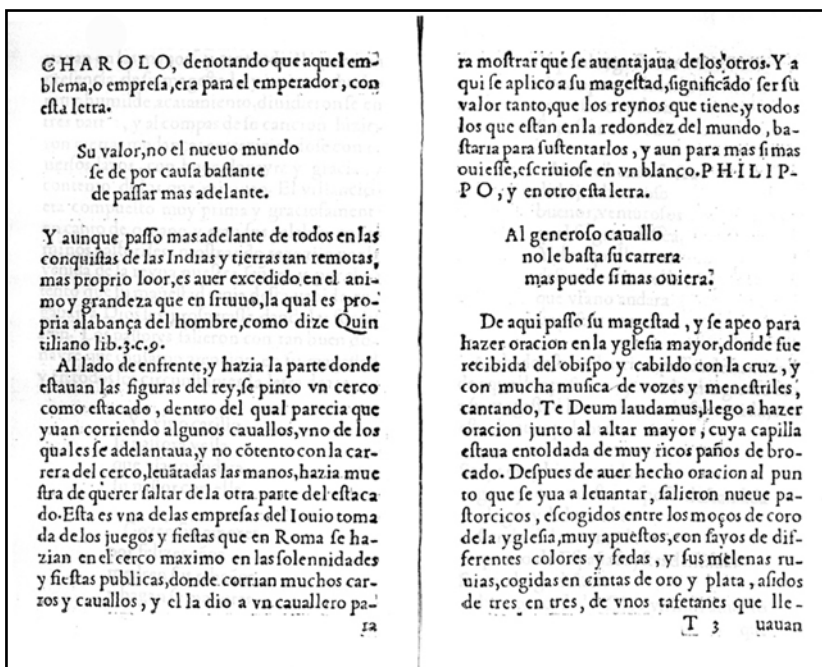 CHAROLO, denotando que aquel em-
blema,o empreſa,era para el emperador, con
eſta letra.
Su valor,no el nueuo mundo
ſe de por cauſa baſtante
de paſſar mas adelante.
Y aunque paſſo mas adelante de todos en las
conquiſtas de las Indias y tierras tan remotas,
mas proprio loor,es auer excedido en el ani-
mo y grandeza que en ſi tuuo,la qual es pro-
pria alabança del hombre,como dize Quin
tiliano lib.3.c.9.
Al lado de enfrente,y hazia la parte donde
eſtauan las figuras del rey,ſe pinto vn cerco
como eſtacado, dentro del qual parecia que
yuan corriendo algunos cauallos,vno de los
quales ſe adelantaua,y no cōtento con la car-
rera del cerco,leuãtadas las manos,hazia mue
ſtra de querer ſaltar de la otra parte del eſtaca
do.Eſta es vna de las empreſas del Iouio toma
da de los juegos y fieſtas que en Roma ſe ha-
zian en el cerco maximo en las ſolennidades
y fieſtas publicas,donde corrian muchos car-
ros y cauallos, y el la dio a vn cauallero pa-
ra
ra moſtrar que ſe auentajaua de los otros.Y a
qui ſe aplico a ſu mageſtad,ſignificãdo ſer ſu
valor tanto,que los reynos que tiene,y todos
los que eſtan en la redondez del mundo, ba-
ſtaria para ſuſtentarlos, y aun para mas ſi mas
ouieſſe,eſcriuioſe en vn blanco.PHILIP-
PO, y en otro eſta letra.
Al generoſo cauallo
no le baſta ſu carrera
mas puede ſi mas ouiera.
De aqui paſſo ſu mageſtad, y ſe apeo para
hazer oracion en la ygleſia mayor,donde fue
recibida del obiſpo y cabildo con la cruz, y
con mucha muſica de vozes y meneſtriles,
cantando,Te Deum laudamus,llego a hazer
oracion junto al altar mayor, cuya capilla
eſtaua entoldada de muy ricos paños de bro-
cado. Deſpues de auer hecho oracion al pun
to que ſe yua a leuantar, ſalieron nueue pa-
ſtorcicos, eſcogidos entre los moços de coro
de la ygleſia,muy apueſtos,con ſayos de dif-
ferentes colores y ſedas, y ſus melenas ru-
uias,cogidas en cintas de oro y plata, aſidos
de tres en tres, de vnos tafetanes que lle-
T 3 uauan